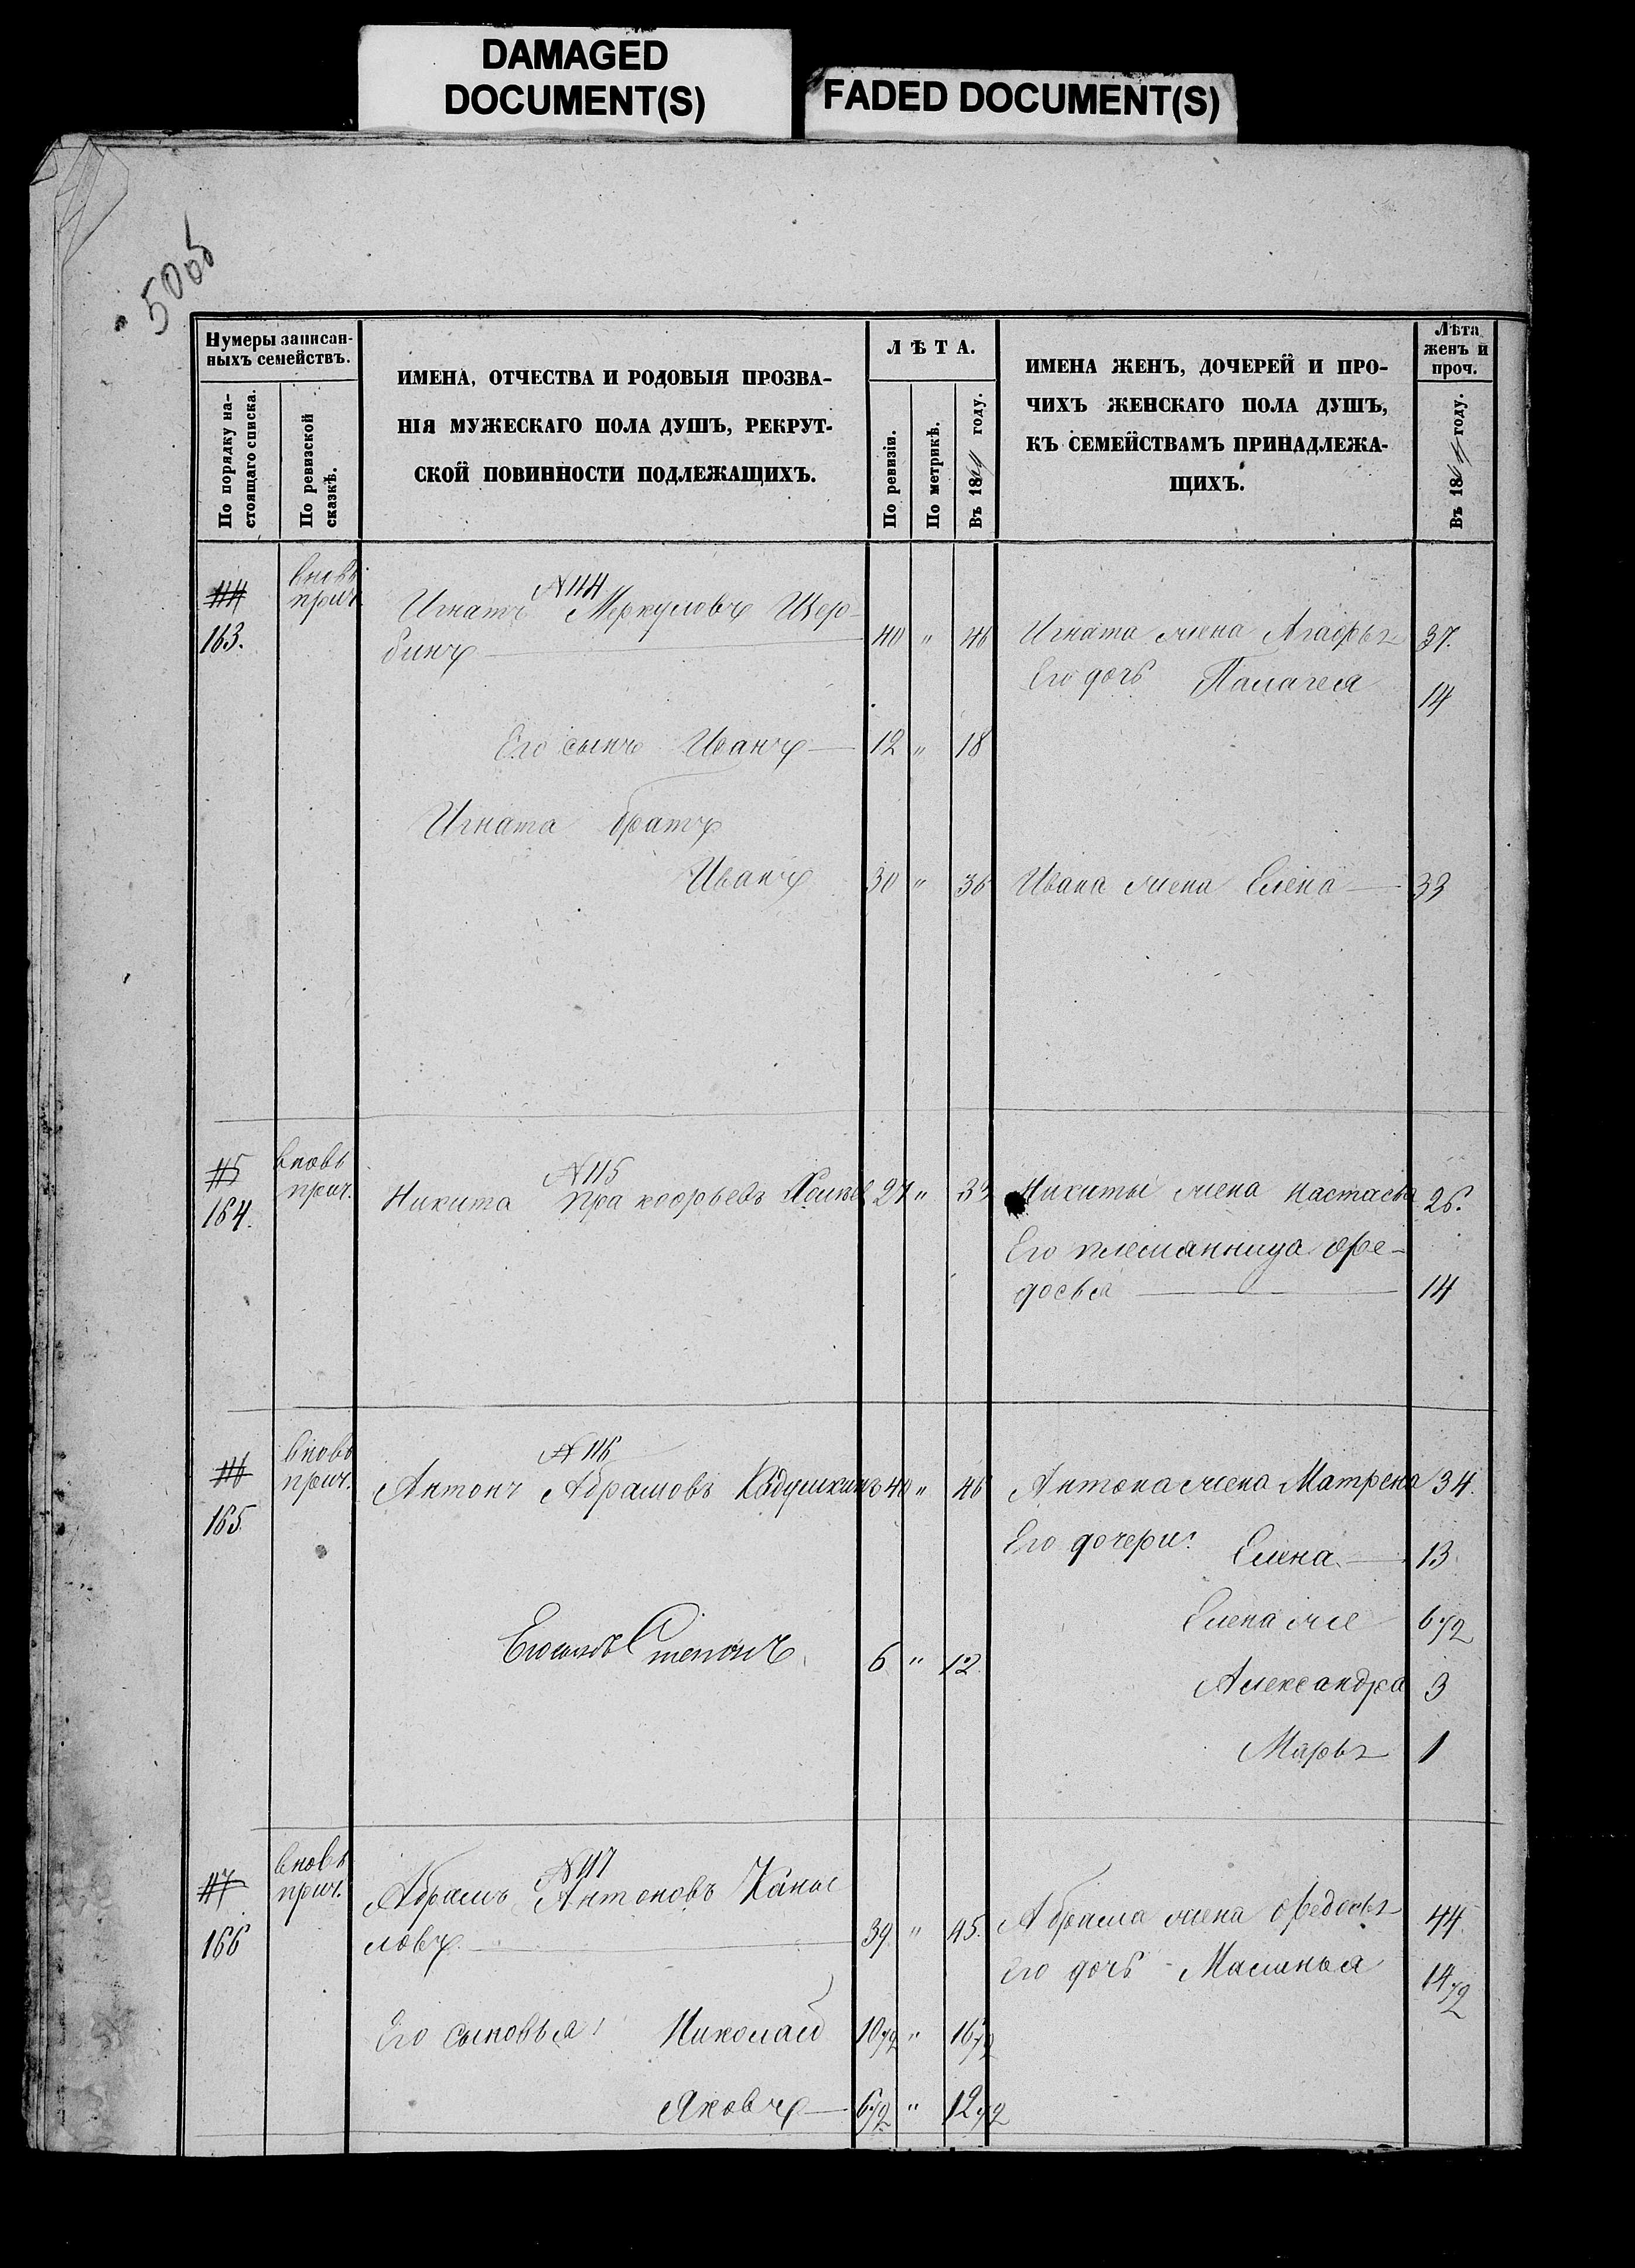 DAMAGED
DOCUMENT(S)
FADED DOCUMENT(S)
50об
Нумеры записан-
ныхъ семействъ.
По порядку на-
стоящаго списка.
По ревизской
сказкѣ.
ИМЕНА, ОТЧЕСТВА И РОДОВЫЯ ПРОЗВА-
НІЯ МУЖЕСКАГО ПОЛА ДУШЪ, РЕКРУТ-
СКОЙ ПОВИННОСТИ ПОДЛЕЖАЩИХЪ.
ЛѢТА.
По ревизіи.
По метрикѣ.
Въ 1864 году.
ИМЕНА ЖЕНЪ, ДОЧЕРЕЙ И ПРО-
ЧИХЪ ЖЕНСКАГО ПОЛА ДУШЪ,
КЪ СЕМЕЙСТВАМЪ ПРИНАДЛЕЖА-
ЩИХЪ.
Лѣта
женъ и
проч.
Въ 1864 году.
114 вновь
163. прич.
N 114
Игнатъ Меркуловъ Щер-
бинъ 40 " 46 Игната жена Агафья 37.
Его дочь Палагея 14
Его сынъ Иванъ 12 " 18
Игната братъ
Иванъ 30 " 36 Ивана жена Елена 33
115 вновь
164. прич.
N 115
Никита Пракофьевъ 27 " 33 Никиты жена Настасья 26.
Его племянница Фе-
досья 14
116 вновь
165 прич.
N 116
Антонъ Абрамовъ 40 " 46 Антона жена Матрена 34.
Его дочери: Елена 13.
Елена же 6 1/2
Его сынъ Степанъ 6 " 12
Александра 3
Марья 1
117 вновь
166 прич.
N 117
Абрамъ Антоновъ
ловъ 39 " 45. Абрама жена Федосья 44.
Его дочь Маланья 14 1/2
Его сыновья: Николай 10 1/2 " 16 1/2
Яковъ 6 1/2 " 12 1/2